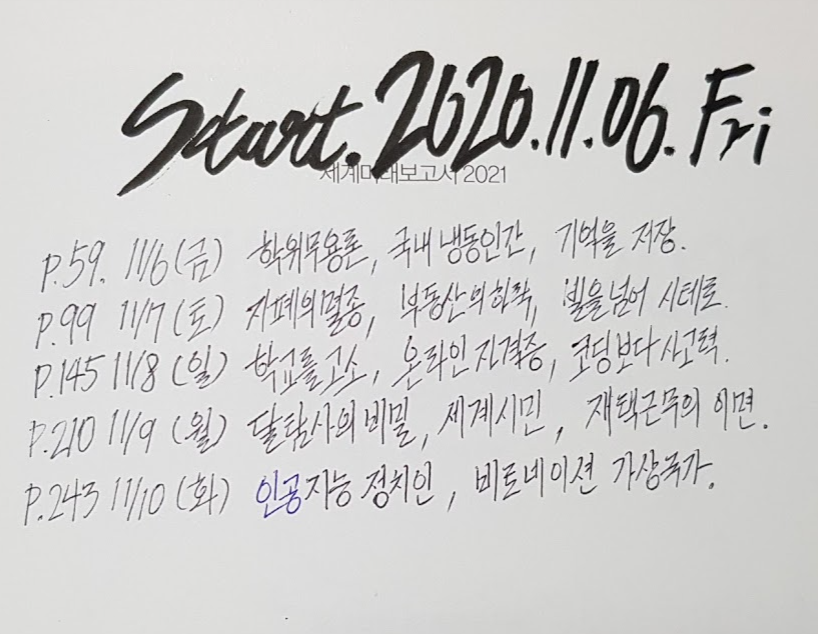 Start. 2020.11.06. Fri
세계미래보고서 2021
P.59. 11/6 (금) 학위무용론, 국내 냉동인간, 기억을 저장.
P.99 11/7 (토) 지폐의 멸종, 부동산의 하락, 빌을 넘어 시테로.
P.145 11/8 (일) 학교를 고소, 온라인 자격증, 코딩보다 사고력.
P.210 11/9 (월) 달탐사의 비밀, 세계시민, 재택근무의 이면.
P.243 11/10 (화) 인공지능 정치인, 비트네이션 가상국가.